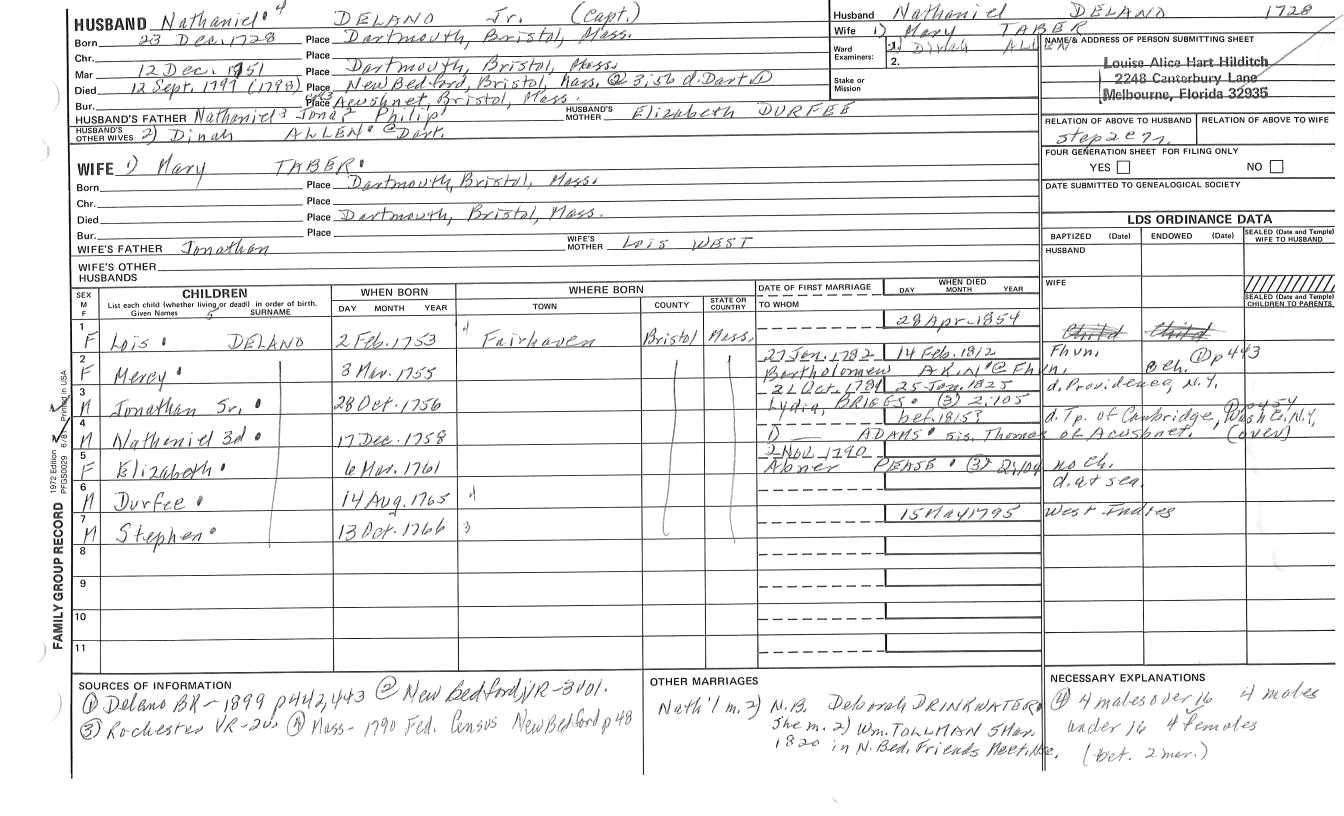 HUSBAND Nathaniel 4 DELANO Jr. (Capt.)
Born 23 Dec. 1728 Place Dartmouth, Bristol, Mass.
Chr. Place
Mar 12 Dec. 1751 Place Dartmouth, Bristol, Mass.
Died 12 Sept. 1799 (1798) Place New Bedford, Bristol, Mass. @ 3;56 d. Dart ①
Bur. Place Acushnet, Bristol, Mass.
HUSBAND'S FATHER Nathaniel 3 Jona 2 Philip 1 HUSBAND'S MOTHER Elizabeth DURFEE
HUSBAND'S OTHER WIVES 2) Dinah ALLEN @ Dart.
Husband Nathaniel DELANO 1728
Wife 1) Mary TABER
Ward Examiners: 1. 2) Dinah ALLEN
2.
Stake or Mission
NAME & ADDRESS OF PERSON SUBMITTING SHEET
Louise Alice Hart Hilditch
2248 Canterbury Lane
Melbourne, Florida 32935
RELATION OF ABOVE TO HUSBAND RELATION OF ABOVE TO WIFE
step 2c7r.
FOUR GENERATION SHEET FOR FILING ONLY
YES NO
DATE SUBMITTED TO GENEALOGICAL SOCIETY
WIFE 1) Mary TABER
Born Place Dartmouth, Bristol, Mass.
Chr. Place
Died Place Dartmouth, Bristol, Mass.
Bur. Place
WIFE'S FATHER Jonathan WIFE'S MOTHER Lois WEST
WIFE'S OTHER HUSBANDS
LDS ORDINANCE DATA
BAPTIZED (Date) ENDOWED (Date) SEALED (Date and Temple) WIFE TO HUSBAND
HUSBAND
WIFE
SEALED (Date and Temple) CHILDREN TO PARENTS
SEX M F CHILDREN WHEN BORN WHERE BORN DATE OF FIRST MARRIAGE WHEN DIED
List each child (whether living or dead) in order of birth. DAY MONTH YEAR TOWN COUNTY STATE OR COUNTRY TO WHOM DAY MONTH YEAR
Given Names 5 SURNAME
1 F Lois DELANO 2 Feb. 1753 Fairhaven Bristol Mass. 28 Apr. 1854 Child Child
2 F Mercy 3 Mar. 1755 27 Jan. 1782 14 Feb. 1812 Fhvn.
Bartholomew AKIN @ Fhvn. 8 ch. ① p 443
3 M Jonathan Sr. 28 Oct. 1756 21 Oct. 1781 25 Jan. 1825 d. Providence, N.Y.
Lydia BRIGGS (3) 2:105
4 M Nathaniel 3d 17 Dec. 1758 bef. 1815? d. Tp. of Cambridge, Wash. C. N.Y.
D ADAMS sis. Thomas of Acushnet. (over)
5 F Elizabeth 6 Mar. 1761 2 Nov. 1790
Abner PEASE (3) 2:104 no ch.
6 M Durfee 14 Aug. 1765 d. at sea
7 M Stephen 13 Oct. 1766 15 May 1795 West Indies
8
9
10
11
FAMILY GROUP RECORD 1972 Edition PFGS0029 6/81 Printed in USA
SOURCES OF INFORMATION
① Delano BR - 1899 p 442, 443 ② New Bedford, VR - 3 vol.
③ Rochester VR - 2 v. ④ Mass - 1790 Fed. Census New Bedford p 48
OTHER MARRIAGES
Nath'l m. 2) N.B. Deborah DRINKWATER
She m. 2) Wm. TOLLMAN 5 Mar.
1820 in N. Bed. Friends Meet. Hse.
NECESSARY EXPLANATIONS
④ 4 males over 16 4 males
under 16 4 females
(bet. 2 mar.)